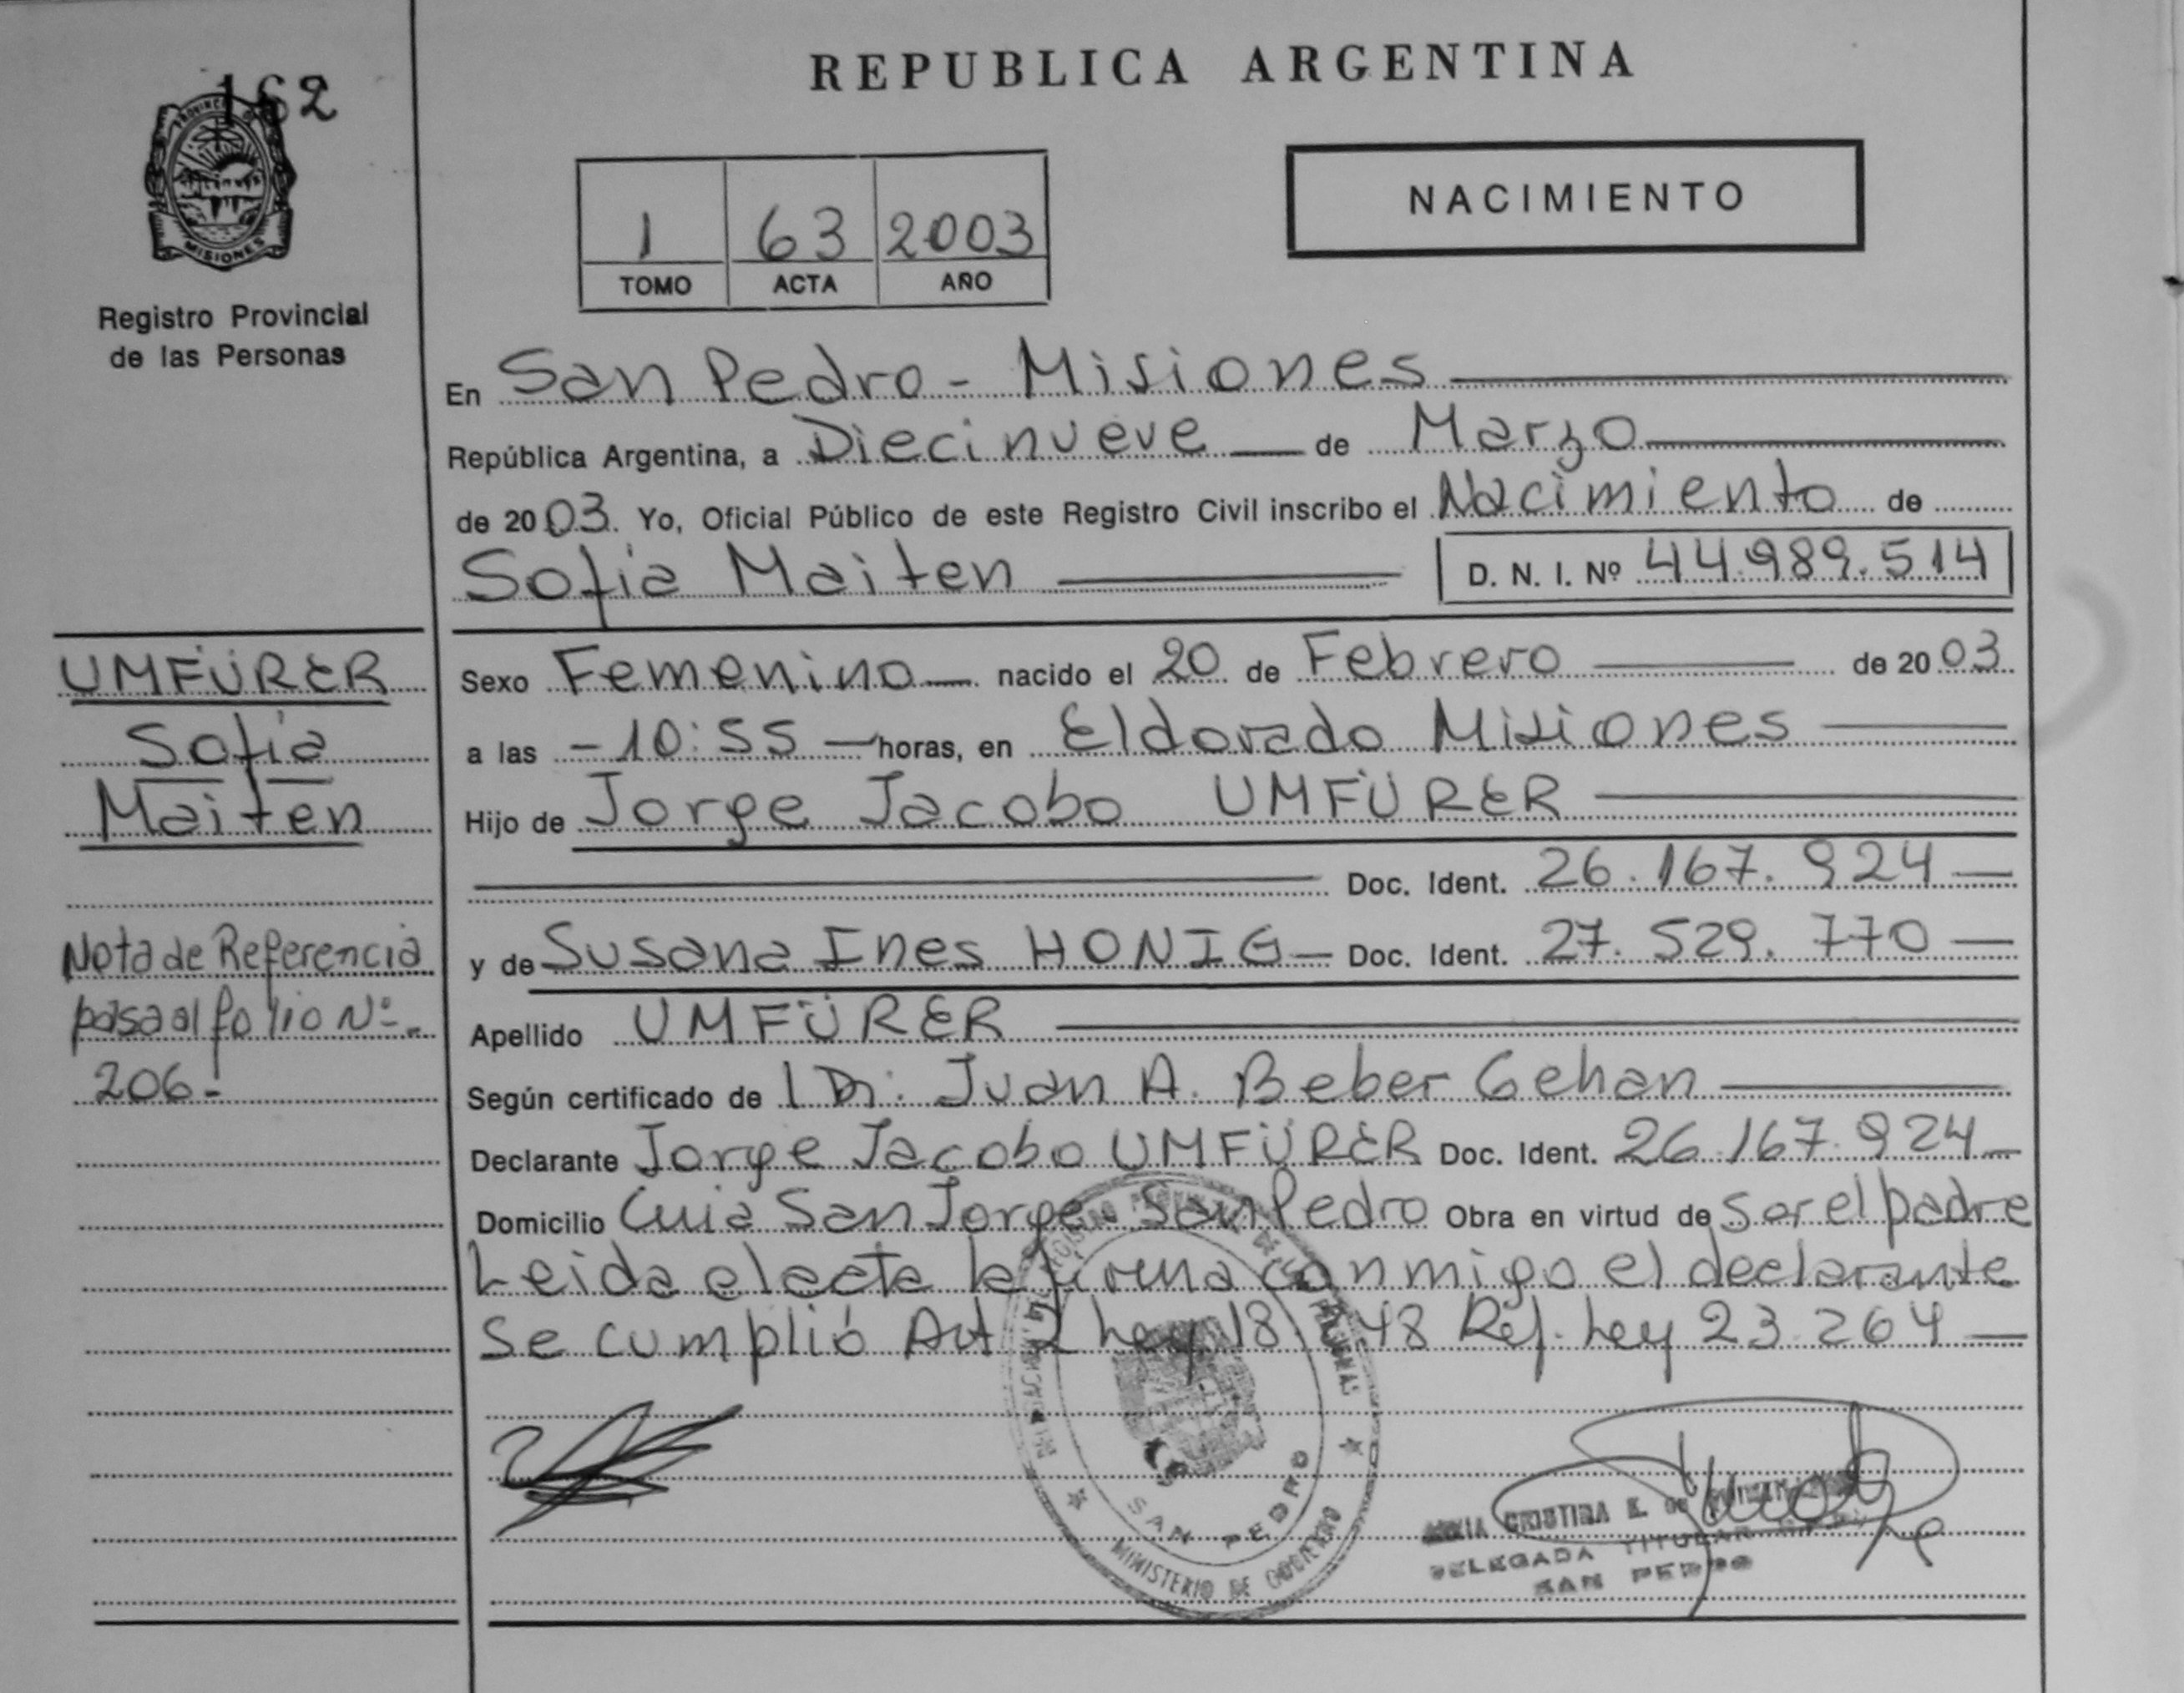 162
REPUBLICA ARGENTINA
NACIMIENTO
1 63 2003
TOMO ACTA AÑO
PROVINCIA DE MISIONES
Registro Provincial
de las Personas
En San Pedro - Misiones
República Argentina, a Diecinueve de Marzo
de 2003. Yo, Oficial Público de este Registro Civil inscribo el Nacimiento de
Sofia Maiten D. N. I. Nº 44.989.514
UMFÜRER
Sofia
Maiten
Nota de Referencia
pasa al folio Nº
206.-
Sexo Femenino nacido el 20 de Febrero de 2003
a las - 10:55 - horas, en Eldorado Misiones
Hijo de Jorge Jacobo UMFÜRER
Doc. Ident. 26.167.924
y de Susana Ines HONIG Doc. Ident. 27.529.770
Apellido UMFÜRER
Según certificado de Dr. Juan A. Beber Gehan
Declarante Jorge Jacobo UMFÜRER Doc. Ident. 26.167.924
Domicilio San Jorge San Pedro Obra en virtud de ser el padre
Leida el acta la firma conmigo el declarante
Se cumplió Art 2 Ley 18. 48 Ref. Ley 23.264
SAN PEDRO
MINISTERIO DE GOBIERNO
CRISTINA E. DE
DELEGADA TITULAR
SAN PEDRO